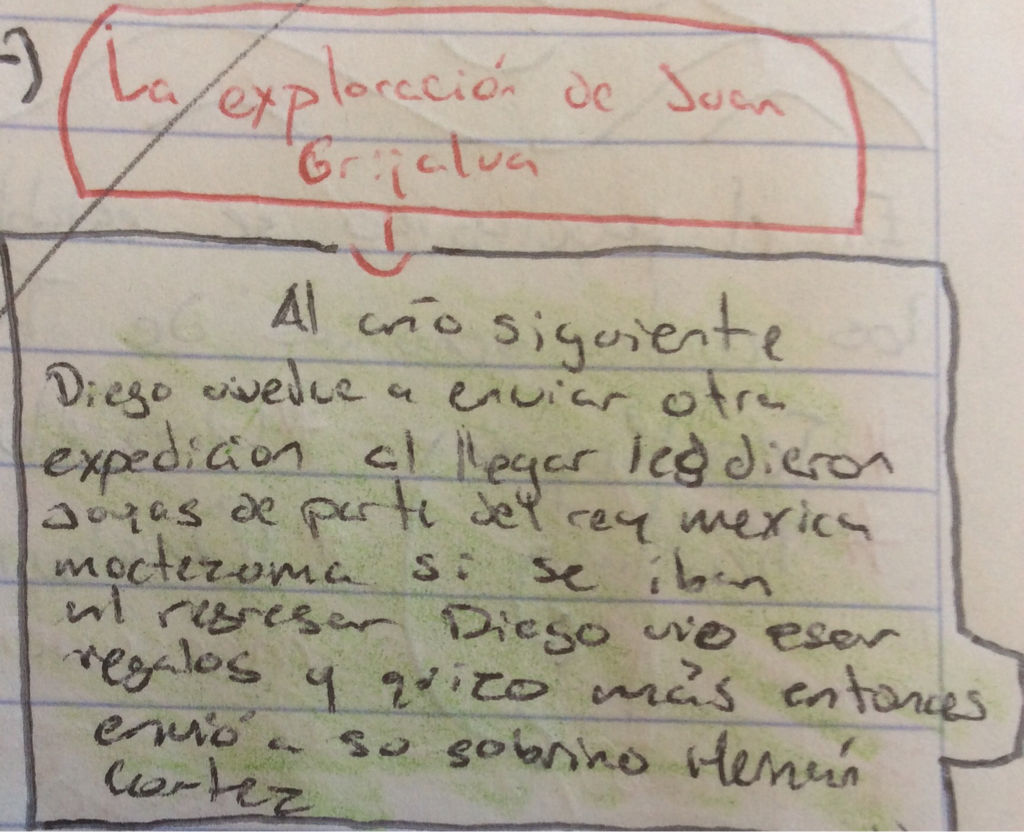 -)
La exploración de Juan
Grijalva
Al año siguiente
Diego vuelve a enviar otra
expedicion al llegar les dieron
joyas de parte del rey mexica
moctezuma si se iban
al regresar Diego vio esos
regalos y quizo más entonces
envió a su sobrino Hernán
Cortez